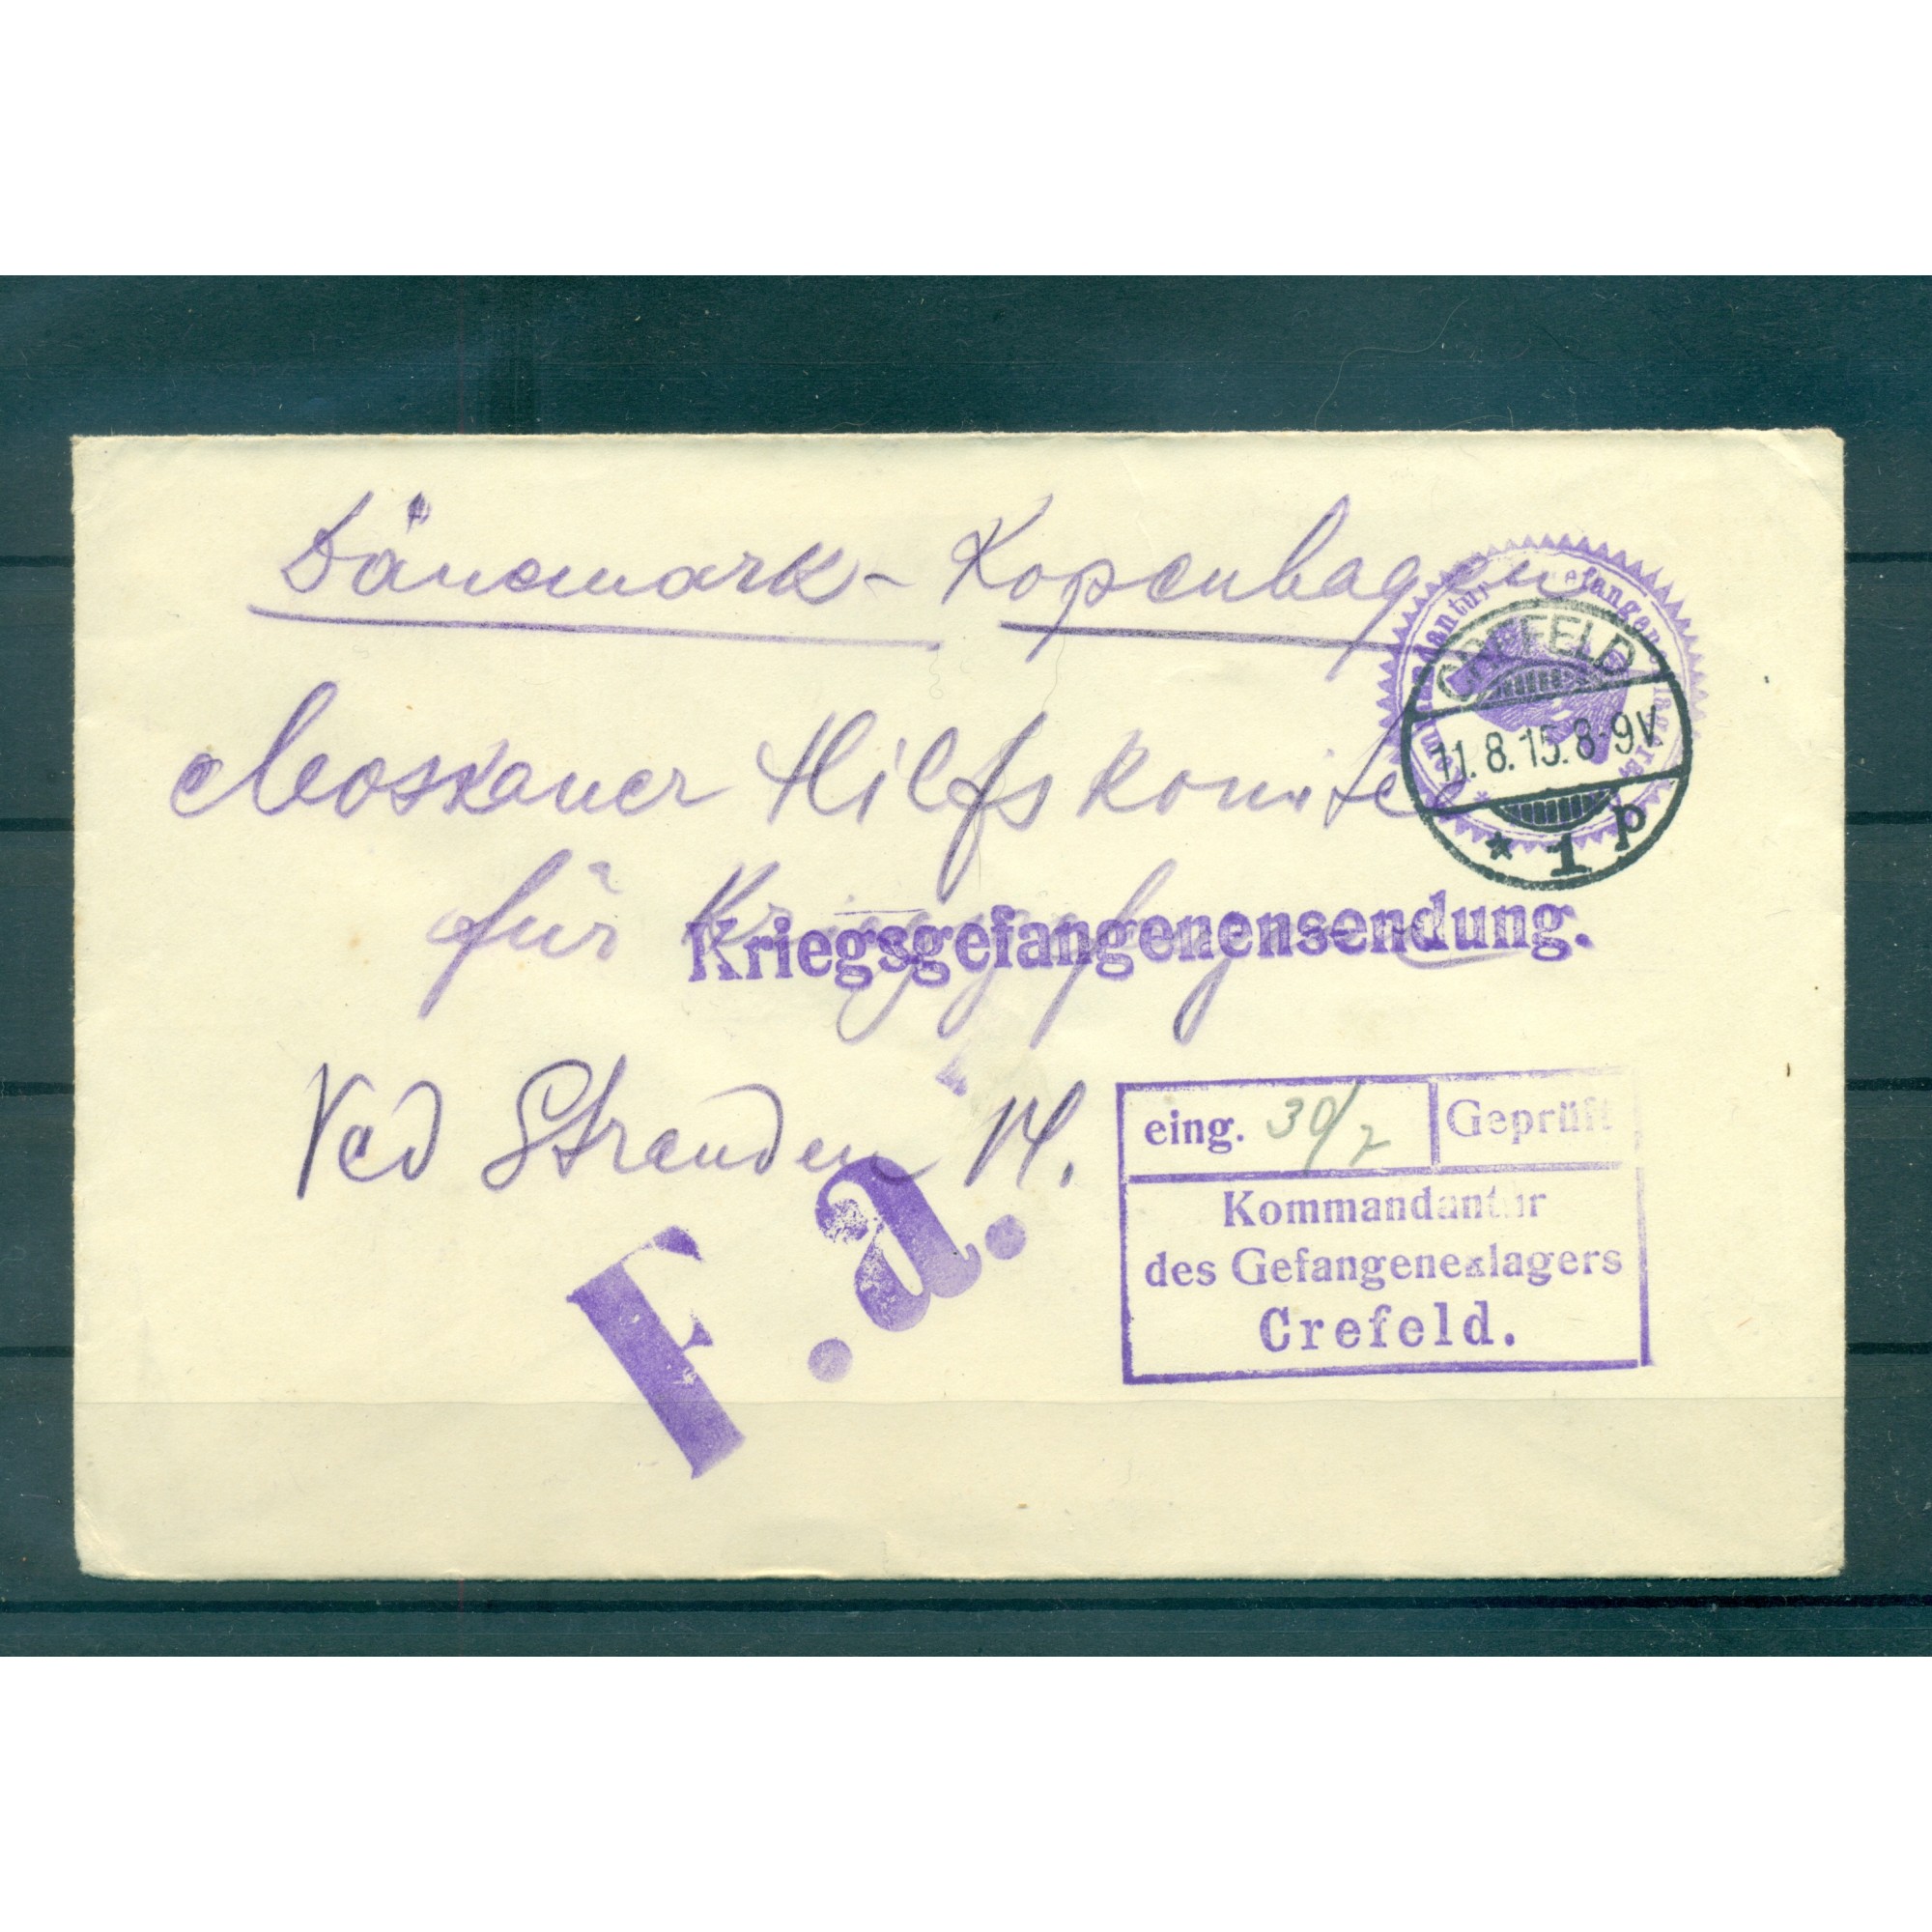 Dänemark - Kopenhagen
CREFELD
11.8.15.8-9V
* 1 p
Moskauer Hilfskomitee
für
Kriegsgefangenensendung.
Ved Stranden 14.
F.a.
eing. 30/7 Geprüft
Kommandantur
des Gefangenenlagers
Crefeld.